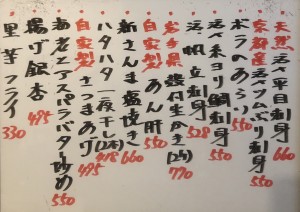 天然 活〆平目刺身 660
京都産 活〆ツムぶり刺身 550
ボラのあらい 550
活〆糸ヨリ鯛刺身 550
活〆帆立刺身 528
岩手県 殻付生かき(2ケ) 770
自家製 あん肝 550
新さんま塩焼き 660
ハタハタ一夜干し(2本) 418
自家製 さつまあげ 495
海老とアスパラバター炒め 550
揚げ銀杏 495
里芋フライ 330